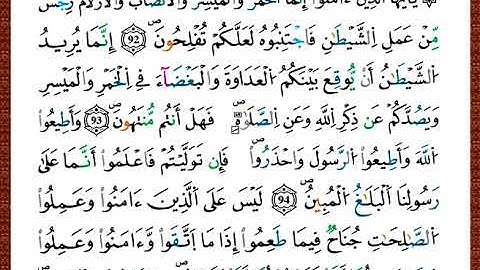 يَٰٓأَيُّهَا ٱلَّذِينَ ءَامَنُوٓا۟ إِنَّمَا ٱلْخَمْرُ وَٱلْمَيْسِرُ وَٱلْأَنصَابُ وَٱلْأَزْلَٰمُ رِجْسٌ
مِّنْ عَمَلِ ٱلشَّيْطَٰنِ فَٱجْتَنِبُوهُ لَعَلَّكُمْ تُفْلِحُونَ 92 إِنَّمَا يُرِيدُ
ٱلشَّيْطَٰنُ أَنْ يُّوقِعَ بَيْنَكُمُ ٱلْعَدَاوَةَ وَٱلْبَغْضَآءَ فِى ٱلْخَمْرِ وَٱلْمَيْسِرِ
وَيَصُدَّكُمْ عَن ذِكْرِ ٱللَّهِ وَعَنِ ٱلصَّلَوٰةِ فَهَلْ أَنتُم مُّنتَهُونَ 93 وَأَطِيعُوا۟
ٱللَّهَ وَأَطِيعُوا۟ ٱلرَّسُولَ وَٱحْذَرُوا۟ فَإِن تَوَلَّيْتُمْ فَٱعْلَمُوٓا۟ أَنَّمَا عَلَىٰ
رَسُولِنَا ٱلْبَلَٰغُ ٱلْمُبِينُ 94 لَيْسَ عَلَى ٱلَّذِينَ ءَامَنُوا۟ وَعَمِلُوا۟
ٱلصَّٰلِحَٰتِ جُنَاحٌ فِيمَا طَعِمُوٓا۟ إِذَا مَا ٱتَّقَوا۟ وَّءَامَنُوا۟ وَعَمِلُوا۟